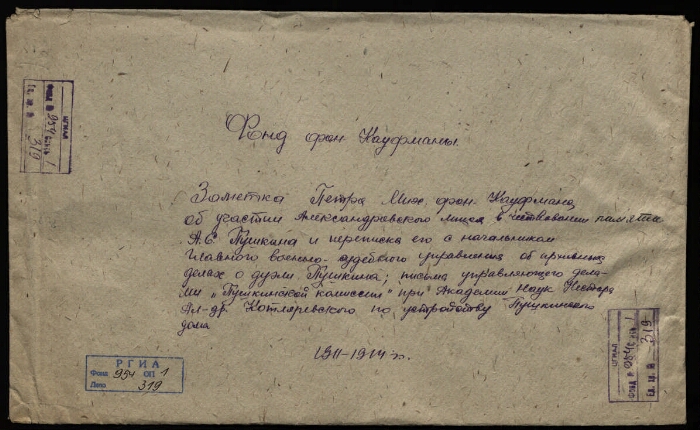 Фонд фон-Кауфманы.
Заметка Петра Мих. фон-Кауфмана
об участии Александровского лицея в чествовании памяти
А.С. Пушкина и переписка его с начальником
главного военно-судебного управления об архивных
делах о дуэли Пушкина; письма управляющего дела-
ми "Пушкинской комиссии" при Академии Наук Нестора
Ал-др. Котляревского по устройству Пушкинского
дома
1911-1914 гг.
РГИА
Фонд 954 ОП 1
Дело 319
ЦГИАЛ
Фонд № 954 опись 1
Ед. хр. № 319
ЦГИАЛ
Фонд № 954 опись 1
Ед. хр. № 319